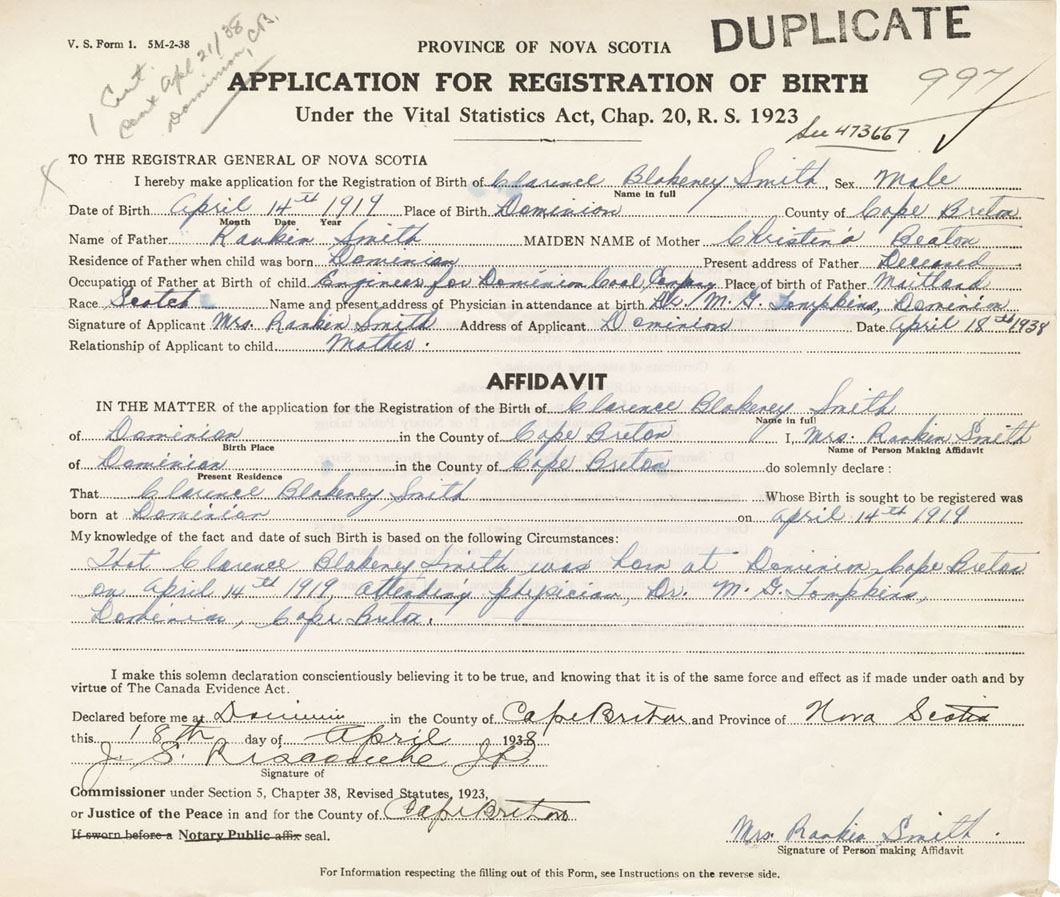 DUPLICATE
V. S. Form 1. 5M-2-38
1 Cert.
sent Apl 21/38
Dominion, C.B.
PROVINCE OF NOVA SCOTIA
APPLICATION FOR REGISTRATION OF BIRTH
997
Under the Vital Statistics Act, Chap. 20, R. S. 1923
See 473667
TO THE REGISTRAR GENERAL OF NOVA SCOTIA
I hereby make application for the Registration of Birth of Clarence Blakeney Smith, Sex Male
Name in full
Date of Birth April 14th 1919 Place of Birth Dominion County of Cape Breton
Month Date Year
Name of Father Rankin Smith MAIDEN NAME of Mother Christena Beaton
Residence of Father when child was born Dominion Present address of Father Deceased
Occupation of Father at Birth of child Engineer for Dominion Coal Company Place of birth of Father Maitland
Race Scotch Name and present address of Physician in attendance at birth Dr. M. G. Tompkins, Dominion
Signature of Applicant Mrs. Rankin Smith Address of Applicant Dominion Date April 18th 1938
Relationship of Applicant to child Mother.
AFFIDAVIT
IN THE MATTER of the application for the Registration of the Birth of Clarence Blakeney Smith
Name in full
of Dominion in the County of Cape Breton I, Mrs. Rankin Smith
Birth Place Name of Person Making Affidavit
of Dominion in the County of Cape Breton do solemnly declare :
Present Residence
That Clarence Blakeney Smith Whose Birth is sought to be registered was
born at Dominion on April 14th 1919
My knowledge of the fact and date of such Birth is based on the following Circumstances:
That Clarence Blakeney Smith was born at Dominion, Cape Breton
on April 14th 1919, attending physician, Dr. M. G. Tompkins,
Dominion, Cape Breton.
I make this solemn declaration conscientiously believing it to be true, and knowing that it is of the same force and effect as if made under oath and by
virtue of The Canada Evidence Act.
Declared before me at Dominion in the County of Cape Breton and Province of Nova Scotia
this 18th day of April 1938
J. S. JP
Signature of
Commissioner under Section 5, Chapter 38, Revised Statutes, 1923,
or Justice of the Peace in and for the County of Cape Breton
If sworn before a Notary Public affix seal.
Mrs. Rankin Smith.
Signature of Person making Affidavit
For Information respecting the filling out of this Form, see Instructions on the reverse side.